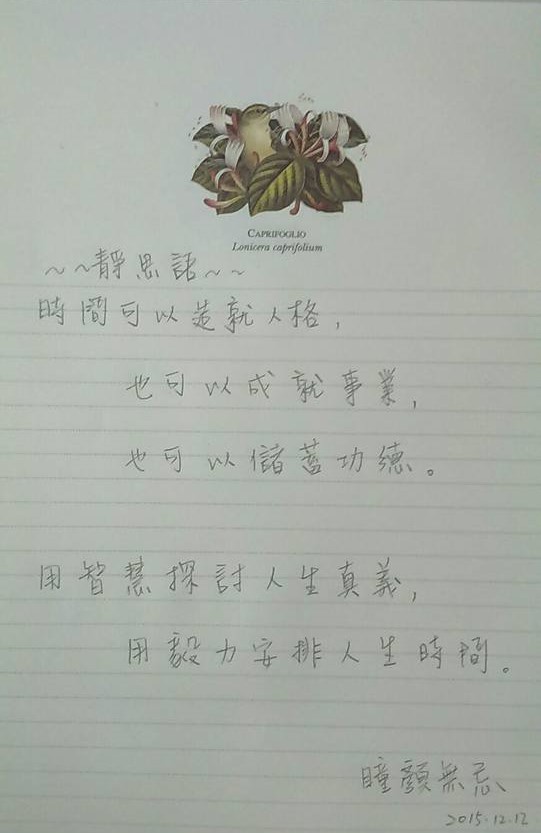 CAPRIFOGLIO
Lonicera caprifolium
~~靜思語~~
時間可以造就人格,
也可以成就事業,
也可以儲蓄功德。
用智慧探討人生真義,
用毅力安排人生時間。
瞳顏無忌
2015.12.12